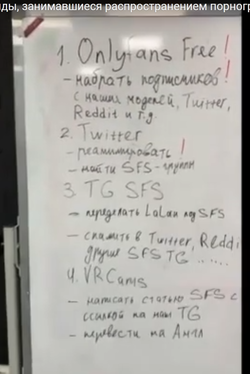 ды, занимавшиеся распространением порног
1. Onlyfans Free!
- набрать подписчиков!
с наших моделей, Twitter,
Reddit и т.д.
2. Twitter
- реанимировать!
- найти SFS-группы
3. TG SFS
- переделать LaLan под SFS
- спамить в Twitter, Reddi
другие SFS TG ......
4. VRCams
- написать статью SFS с
ссылкой на наш TG
- перевести на Англ